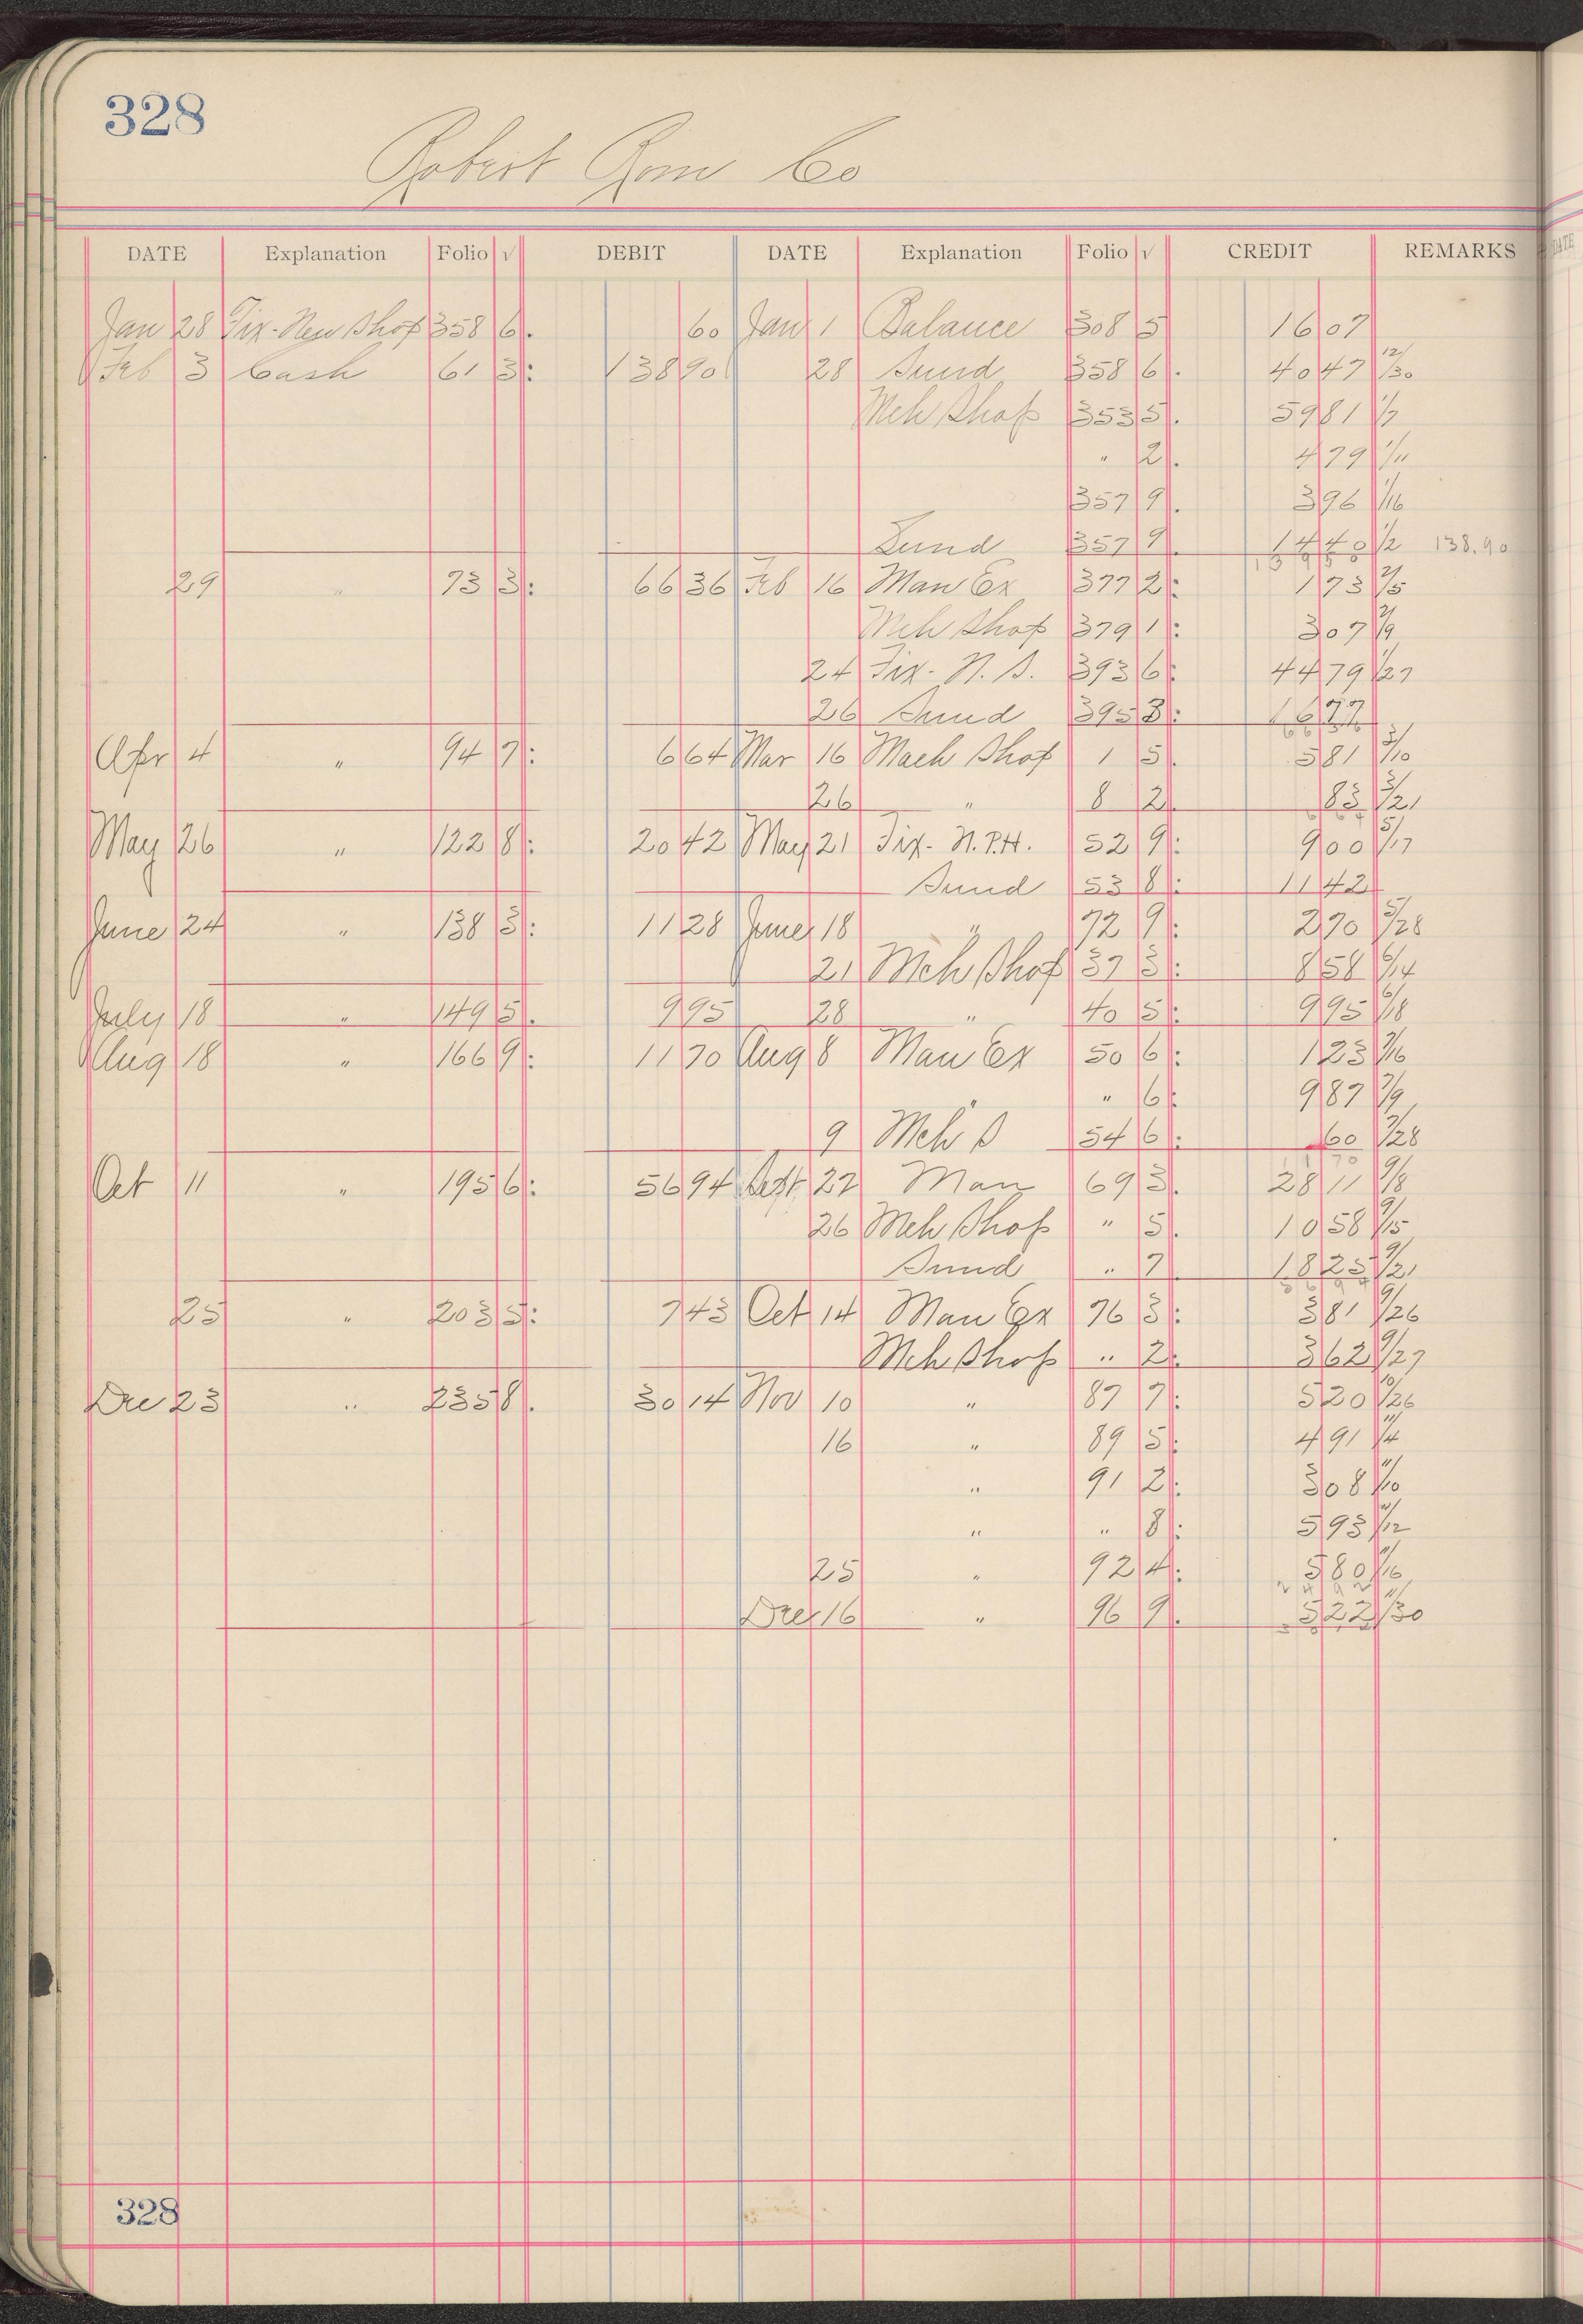 328
Robert Rom Co
DATE Explanation Folio √ DEBIT DATE Explanation Folio √ CREDIT REMARKS
Jan 28 Fix-New Shop 358 6. 60 Jan 1 Balance 308 5 16 07
Feb 3 Cash 61 3: 138 90 28 Sund 358 6. 40 47 12/30
Mch Shop 353 5. 59 81 1/7
" 2. 4 79 1/11
357 9. 3 96 1/16
Sund 357 9. 14 40 1/2 138.90
139 50
29 " 73 3: 66 36 Feb 16 Man Ex 377 2: 1 73 2/5
Mch Shop 379 1: 3 07 2/9
24 Fix- N. S. 393 6: 44 79 1/27
26 Sund 395 3: 16 77
66 36
Apr 4 " 94 7: 6 64 Mar 16 Mach Shop 1 5. 5 81 3/10
26 " 8 2. 83 3/21
6 64
May 26 " 122 8: 20 42 May 21 Fix- N.P.H. 52 9: 9 00 5/17
Sund 53 8: 11 42
June 24 " 138 3: 11 28 June 18 " 72 9: 2 70 5/28
21 Mch Shop 37 3: 8 58 6/14
July 18 " 149 5. 9 95 28 " 40 5: 9 95 6/18
Aug 18 " 166 9: 11 70 Aug 8 Man Ex 50 6: 1 23 7/16
" 6: 9 87 7/9
9 Mch S 54 6: 60 7/28
11 70
Oct 11 " 195 6: 56 94 Sept 22 Man 69 3. 28 11 9/8
26 Mch Shop " 5. 10 58 9/15
Sund " 7. 18 25 9/21
56 94
25 " 203 5: 7 43 Oct 14 Man Ex 76 3: 3 81 9/26
Mch Shop " 2: 3 62 9/27
Dec 23 " 235 8. 30 14 Nov 10 " 87 7: 5 20 10/26
16 " 89 5: 4 91 11/4
" 91 2: 3 08 11/10
" " 8: 5 93 11/12
25 " 92 4: 5 80 11/16
24 92
Dec 16 " 96 9. 5 22 11/30
328